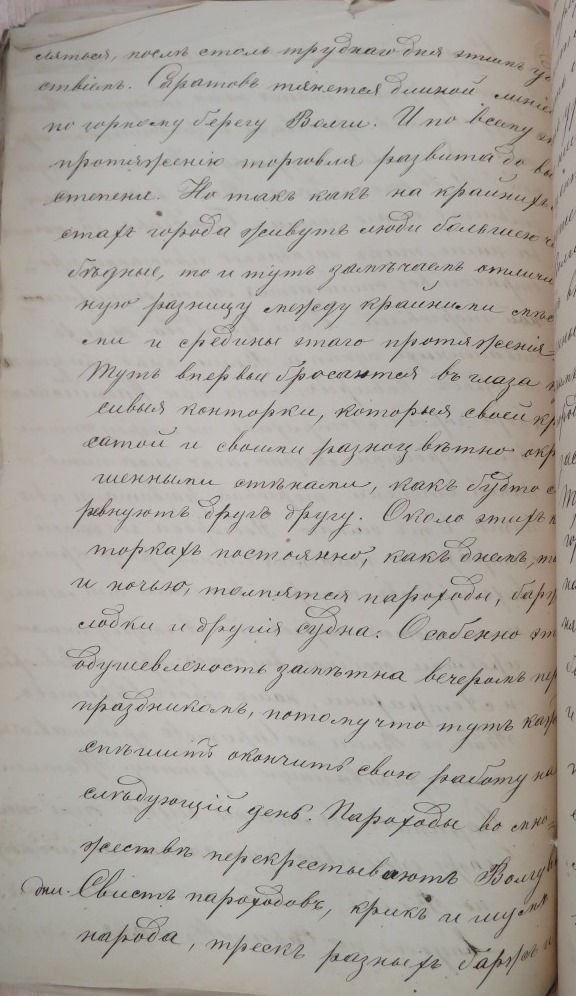 ляться, послѣ столь труднаго дня этимъ уд
ствіемъ. Саратовъ тянется длиной линіе
по горному берегу Волги. И по всему эт
протяженію торговля развита до вы
степени. Но такъ какъ на крайнихъ
стахъ города живутъ люди большею ч
бѣдные, то и тутъ замѣчаемъ отличи
ную разницу между крайними мѣс
ми и средины этаго протяженія
Тутъ впервые бросаются въ глаза к
сивыя конторки, которыя своей кр
сатой и своими разноцвѣтно окр
шенными стѣнами, какъ будто с
ревнуютъ другъ другу. Около этихъ к
торкахъ постоянно, какъ днемъ, та
и ночью, толпятся пароходы, барж
лодки и другія судна. Особенно эт
одушевленость замѣтна вечеромъ пе
праздникомъ, потому что тутъ каж
спѣшитъ окончить свою работу на
слѣдующій день. Пароходы во мно=
жествѣ перекрестываютъ Волгу в
дни. Свистъ пароходовъ, крикъ и шумъ
народа, трескъ разныхъ баржъ и